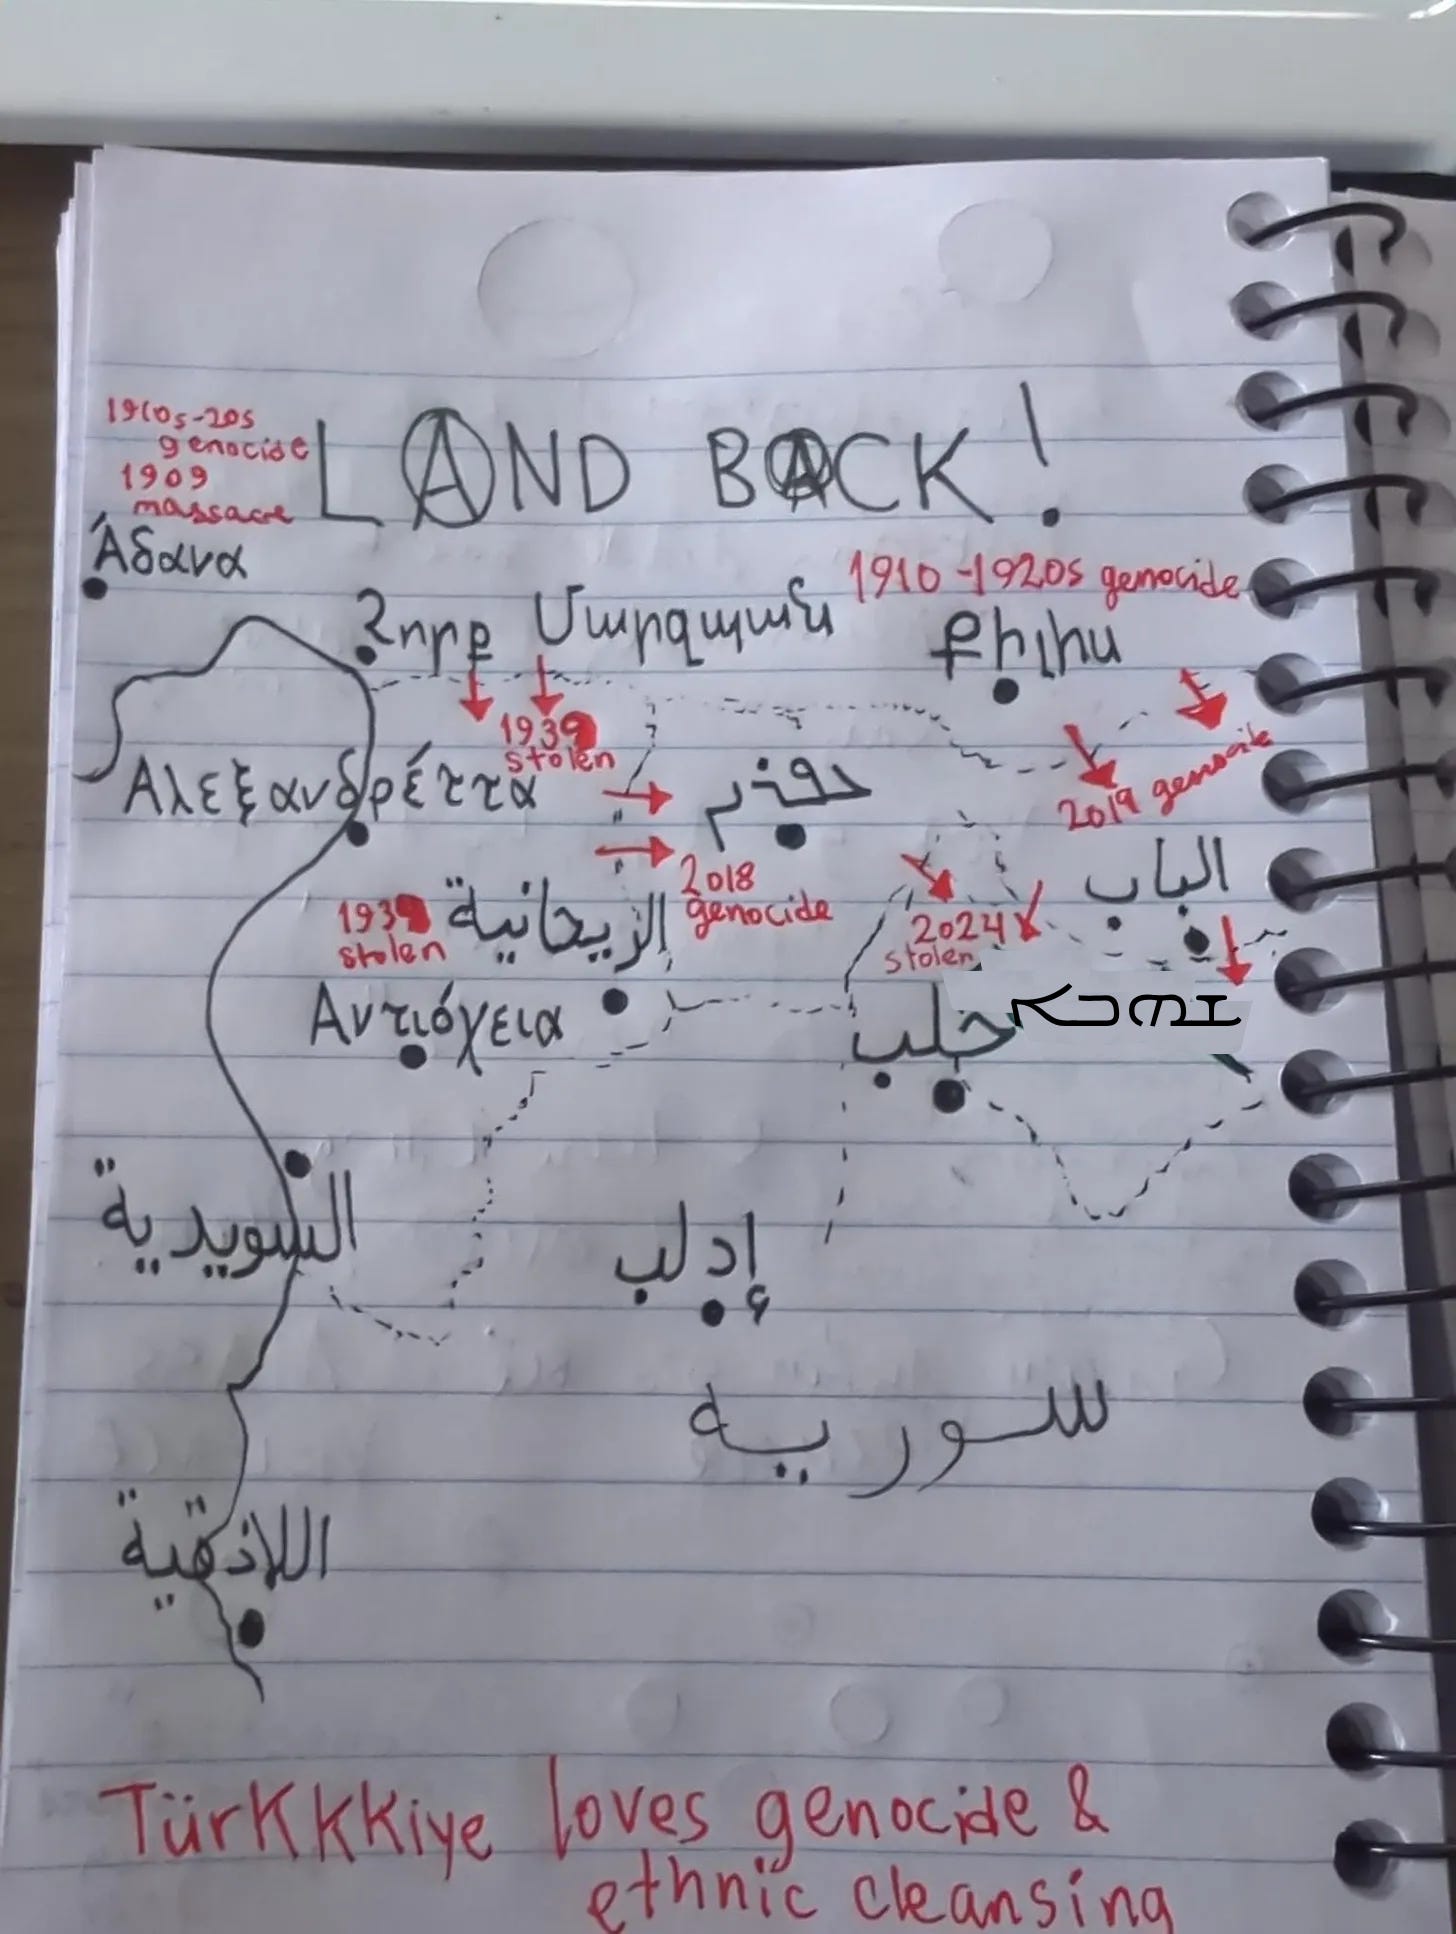 1910s-20s
genocide
1909
massacre
LAND BACK!
Άδανα
1910-1920s genocide
Չորք Մարզպան
Քիլիս
1939
stolen
2019 genocide
Αλεξανδρέττα
الباب
2018
genocide
1939
stolen
الريحانية
2024
stolen
Αντιόχεια
حلب
السويدية
إدلب
سوريه
اللاذقية
TürKKKiye loves genocide &
ethnic cleansing